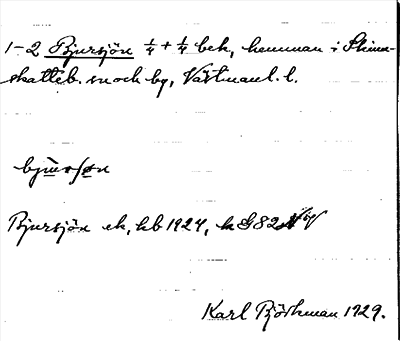 1-2 Bjursjön ¼ + ¼ bek, hemman i Skinn-
skatteb. sn och bg, Västmanl. l.
Bjursjön ek, hb 1924, k G 82
Karl Björkman 1929.